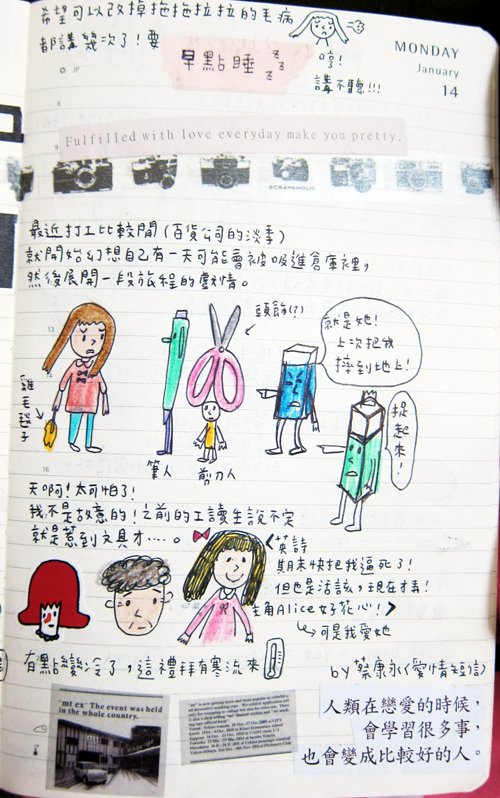 希望可以改掉拖拖拉拉的毛病
都講幾次了！要
早點睡 z z z
哼！
講不聽!!!
MONDAY
January
14
8
Fulfilled with love everyday make you pretty.
SCRAPAHOLIC
最近打工比較閒(百貨公司的淡季)
就開始幻想自己有一天可能會被吸進倉庫裡，
然後展開一段旅程的劇情。
13
頭飾(?)
就是她！
上次把我
摔到地上！
捉起來！
雞毛毯子
筆人
剪刀人
16
天啊！太可怕了！
我不是故意的！之前的工讀生說不定
就是惹到文具才....。
<英詩
期末快把我逼死了！
但也是活該，現在才弄！
主角Alice好花心！>
可是我愛她
有點變冷了，這禮拜有寒流來
by 蔡康永(愛情短信)
"mt ex" The event was held
in the whole country.
人類在戀愛的時候，
會學習很多事，
也會變成比較好的人。